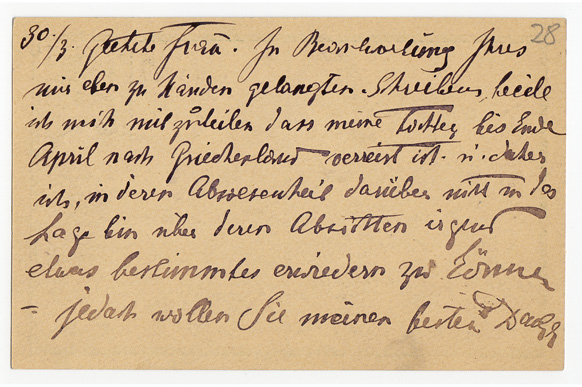 28
30./3. Geehrte Frau. In Beantwortung Ihres
mir eben zu Händen gelangten Schreibens, beeile
ich mich mitzuteilen dass meine Tochter bis Ende
April nach Griechenland verreist ist. u. daher
ich, in deren Abwesenheit darüber nicht in der
Lage bin über deren Absichten irgend
etwas bestimmtes erwiedern zu können
– jedoch wollen Sie meinen besten Dank